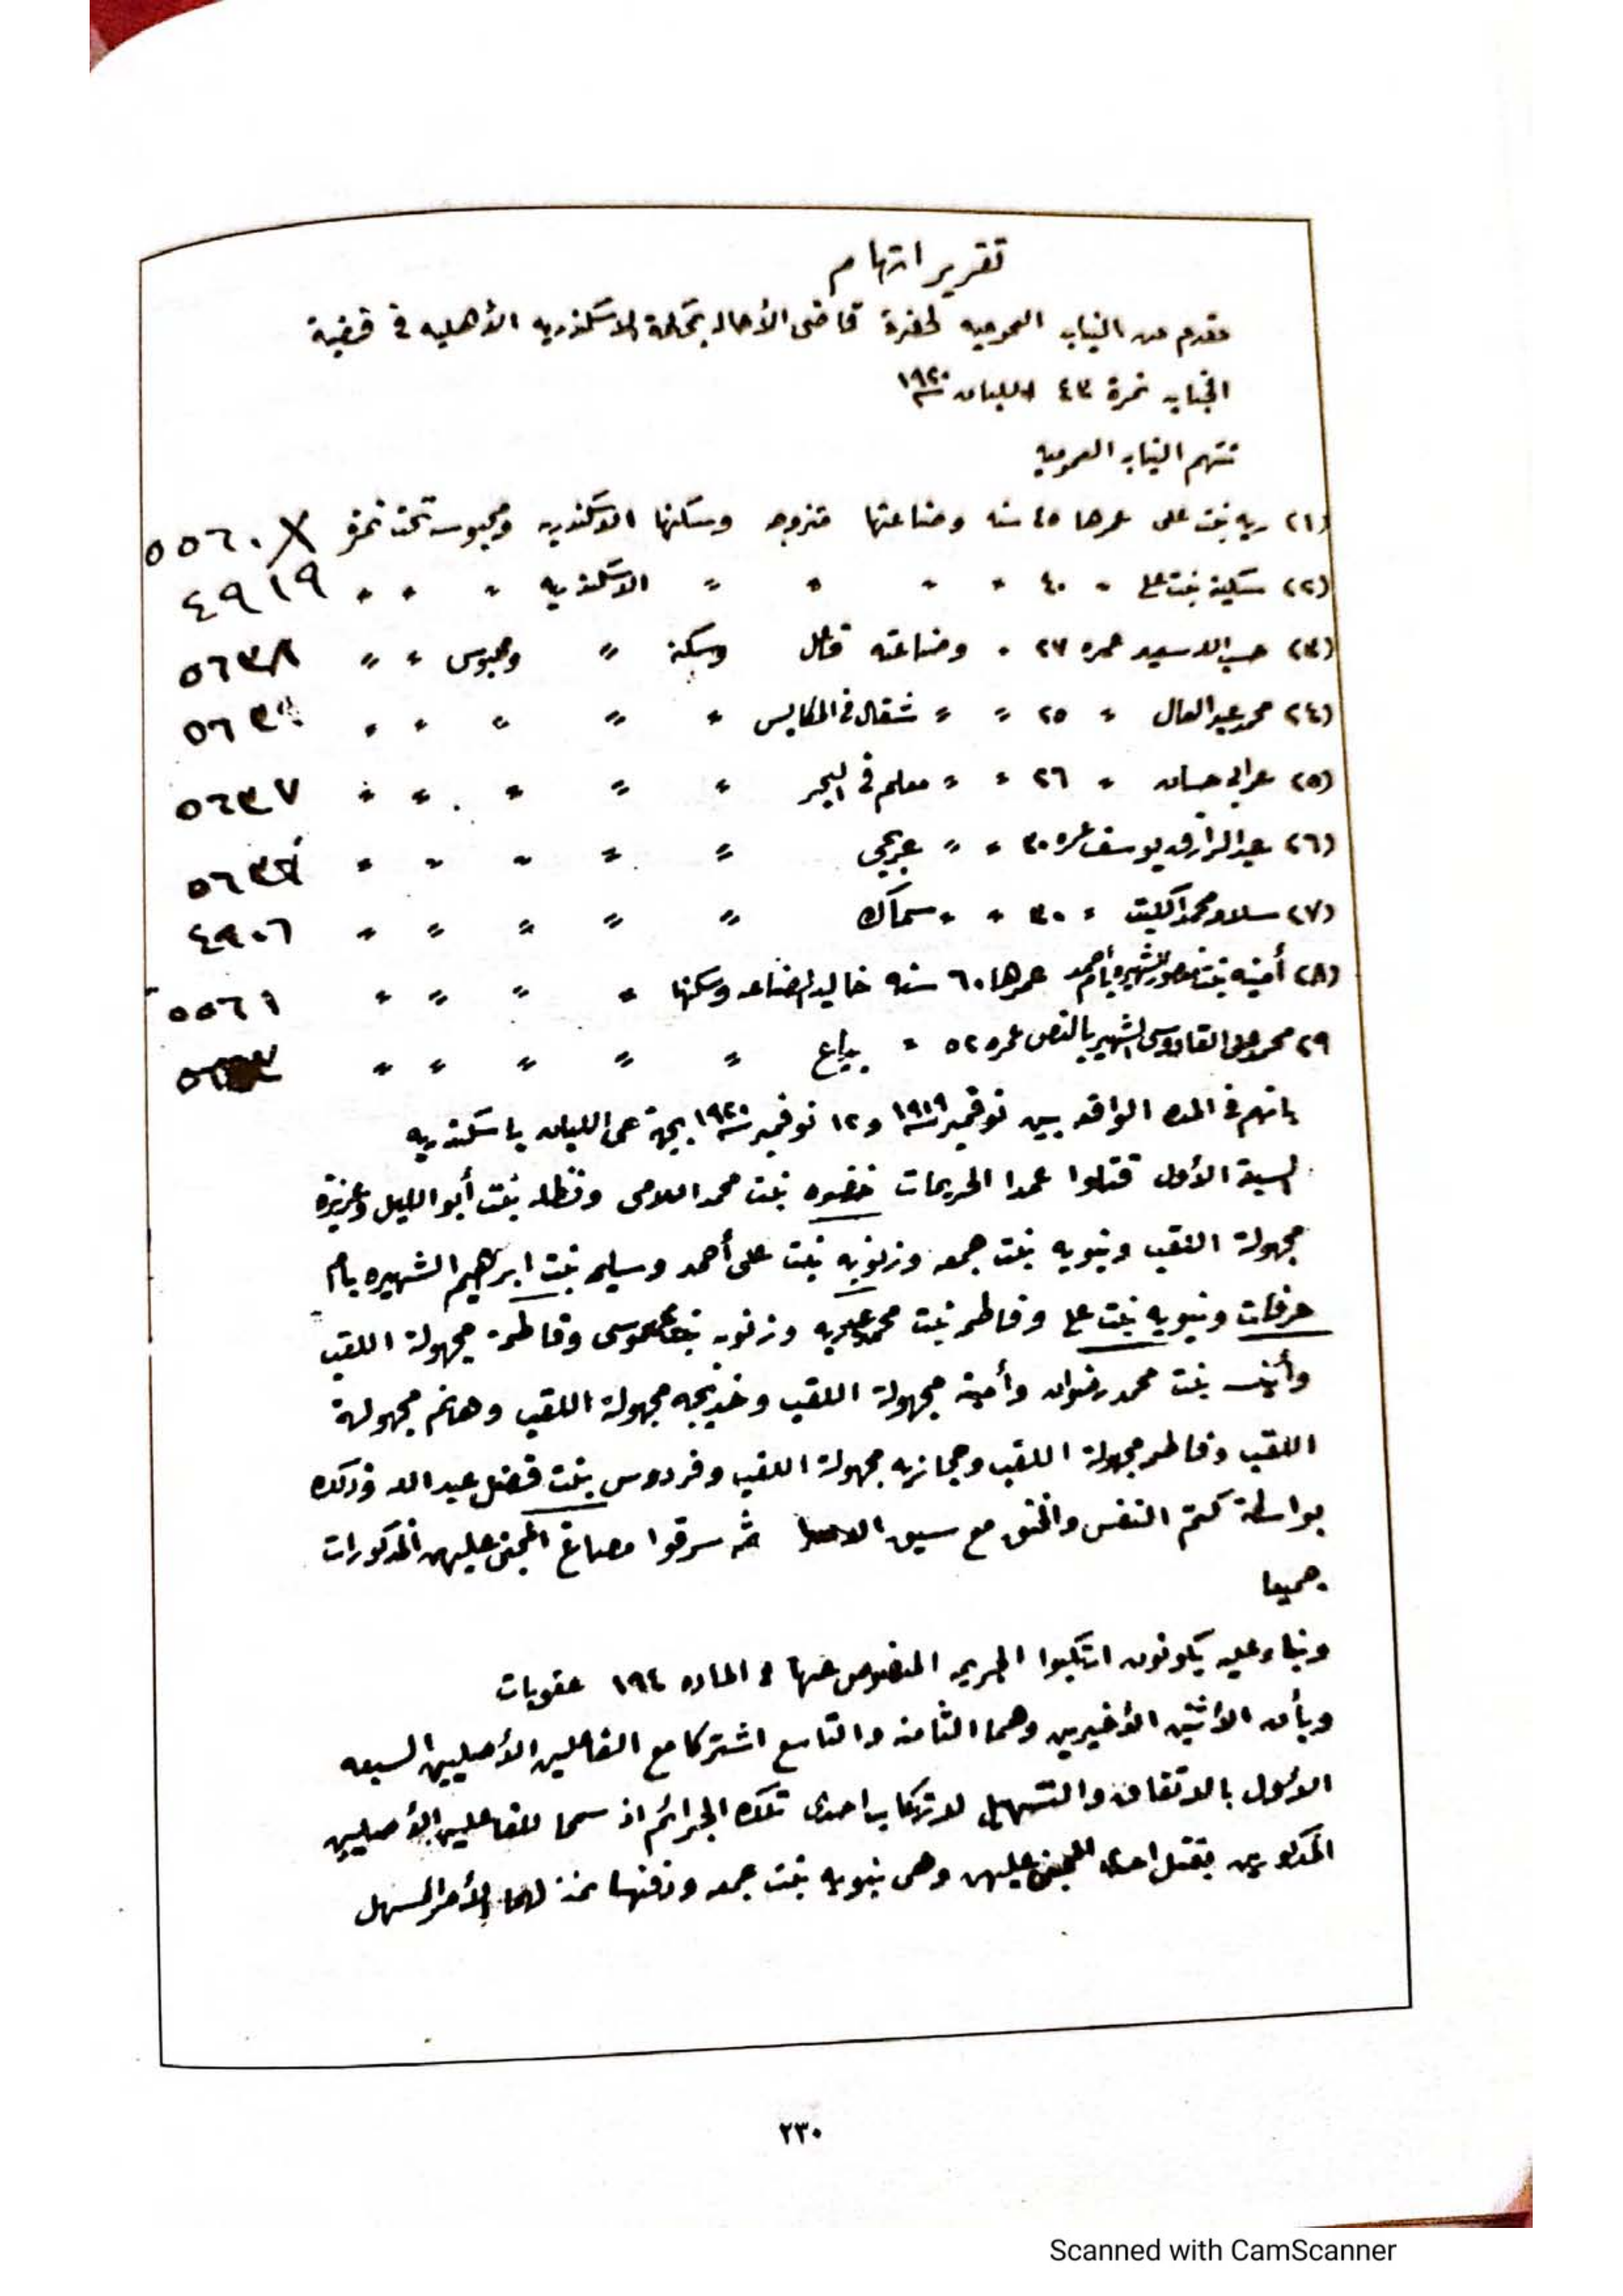 تقرير اتهام
مقدم من النيابه العموميه لحضرة قاضى الأحاله بمحكمة الاسكندريه الأهليه فى قضية
الجنايه نمرة ٤٣ اللبان سنة ١٩٢٠
تتهم النيابه العموميه
(٢١) ريه بنت على عمرها ٤٥ سنه وصناعتها متزوجه وسكنها الاسكندريه ومحبوسه تحت نمرة ٥٥٦٠
(٢٢) سكينه بنت على " ٤٠ " " " " الاسكندريه " " " ٤٩١٩
(٢٣) حسب الله سعيد عمره ٢٧ " وصناعته وسكنه " ومحبوس " " ٥٦٣٨
(٢٤) محمد عبد العال " ٢٥ " " شغال فى المكابس " " " " "
(٢٥) عرابى حسان " ٢٦ " " معلم فى البحر " " " " " ٥٦٣٧
(٢٦) عبد الرازق يوسف عمره ٣٠ " " عربجى " " " " "
(٢٧) سلامه محمد الكبت " ٣٠ " " سماك " " " " " ٤٩٠٦
(٢٨) أمينه بنت منصور الشهيره بأم أحمد عمرها ٦٠ سنه خاليه الصناعه وسكنها " " " " ٥٥٦١
٢٩ محمد على القادوسى الشهير بالنص عمره ٥٢ " بياع " " " " "
بانهم فى المده الواقعه بين نوفمبر سنة ١٩١٩ و١٢ نوفمبر سنة ١٩٢٠ بجهة اللبان باسكندريه
السبعة الأول قتلوا عمدا الحريمات خضره بنت محمد اللامى ونظله بنت أبو الليل وعزيزة
مجهولة اللقب ونبويه بنت جمعه وزنوبه بنت على أحمد وسليمه بنت ابرهيم الشهيره بأم
عرفات ونبويه بنت على وفاطمه بنت محمد عبد ربه وزنوبه بنت موسى وفاطمة مجهولة اللقب
وأنيسه بنت محمد رضوان وأمينه مجهولة اللقب وخديجه مجهولة اللقب وهانم مجهولة
اللقب وفاطمه مجهولة اللقب وحجازيه مجهولة اللقب وفردوس بنت فضل عبد الله وذلك
بواسطة كتم النفس والخنق مع سبق الاصرار ثم سرقوا مصاغ المجنى عليهن المذكورات
جميعا
وبناء عليه يكونون ارتكبوا الجريمه المنصوص عنها فى الماده ١٩٤ عقوبات
وبأن الأثنين الأخيرين وهما الثامنه والتاسع اشتركا مع الفاعلين الأصليين السبعه
الأول بالاتفاق والتسهيل لارتكاب احدى تلك الجرائم اذ سمحا للفاعلين الأصليين
المذكورين بقتل احدى المجنى عليهن وهى نبويه بنت جمعه ودفنها الأمر المسهل
٢٣٠
Scanned with CamScanner